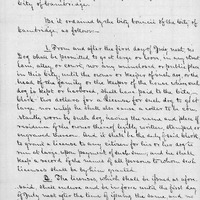 City of Cambridge.
Be it ordained by the City Council of the City of
Cambridge, as follows:
1. From and after the first day of July next, no
Dog shall be permitted to go at large or loose, in any street
lane, alley, or court, nor in any uninclosed or public place
in this City, until the owner or keeper of such dog, or the
head of the family, or the keeper of the house where such
dog is kept or harbored, shall have paid to the City
two dollars for a license for such dog to go at
large, nor unless he shall also cause a collar to be
constantly worn by such dog, having the name and place of
residence of the owner thereof legibly written, stamped or
engraved thereon. And it shall be the duty of said
to grant a license to any citizen for his or her dog to
run at large upon payment of such sum; and he shall
keep a record of the names of all persons to whom such
licenses shall be by him granted.
2. The licenses, which shall be issued as afore-
said, shall endure and be in force until the first day
of July next after the time of issuing the same, and no